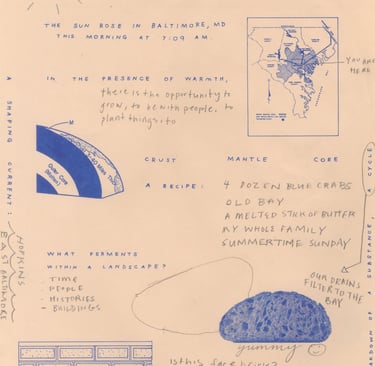 THE SUN ROSE IN BALTIMORE, MD
THIS MORNING AT 7:09 AM.
YOU ARE
HERE
IN THE PRESENCE OF WARMTH,
there is the opportunity to
grow, to be with people, to
plant things, to
A SHAPING CURRENT:
HOPKINS
EAST BALTIMORE
M
Outer Core
CRUST MANTLE CORE
A RECIPE:
4 DOZEN BLUE CRABS
OLD BAY
A MELTED STICK OF BUTTER
MY WHOLE FAMILY
SUMMERTIME SUNDAY
WHAT FERMENTS
WITHIN A LANDSCAPE?
- TIME
- PEOPLE
- HISTORIES
- BUILDINGS
OUR DRAINS
FILTER TO THE
BAY
yummy
is this
OF A SUBSTANCE, A CYCLE